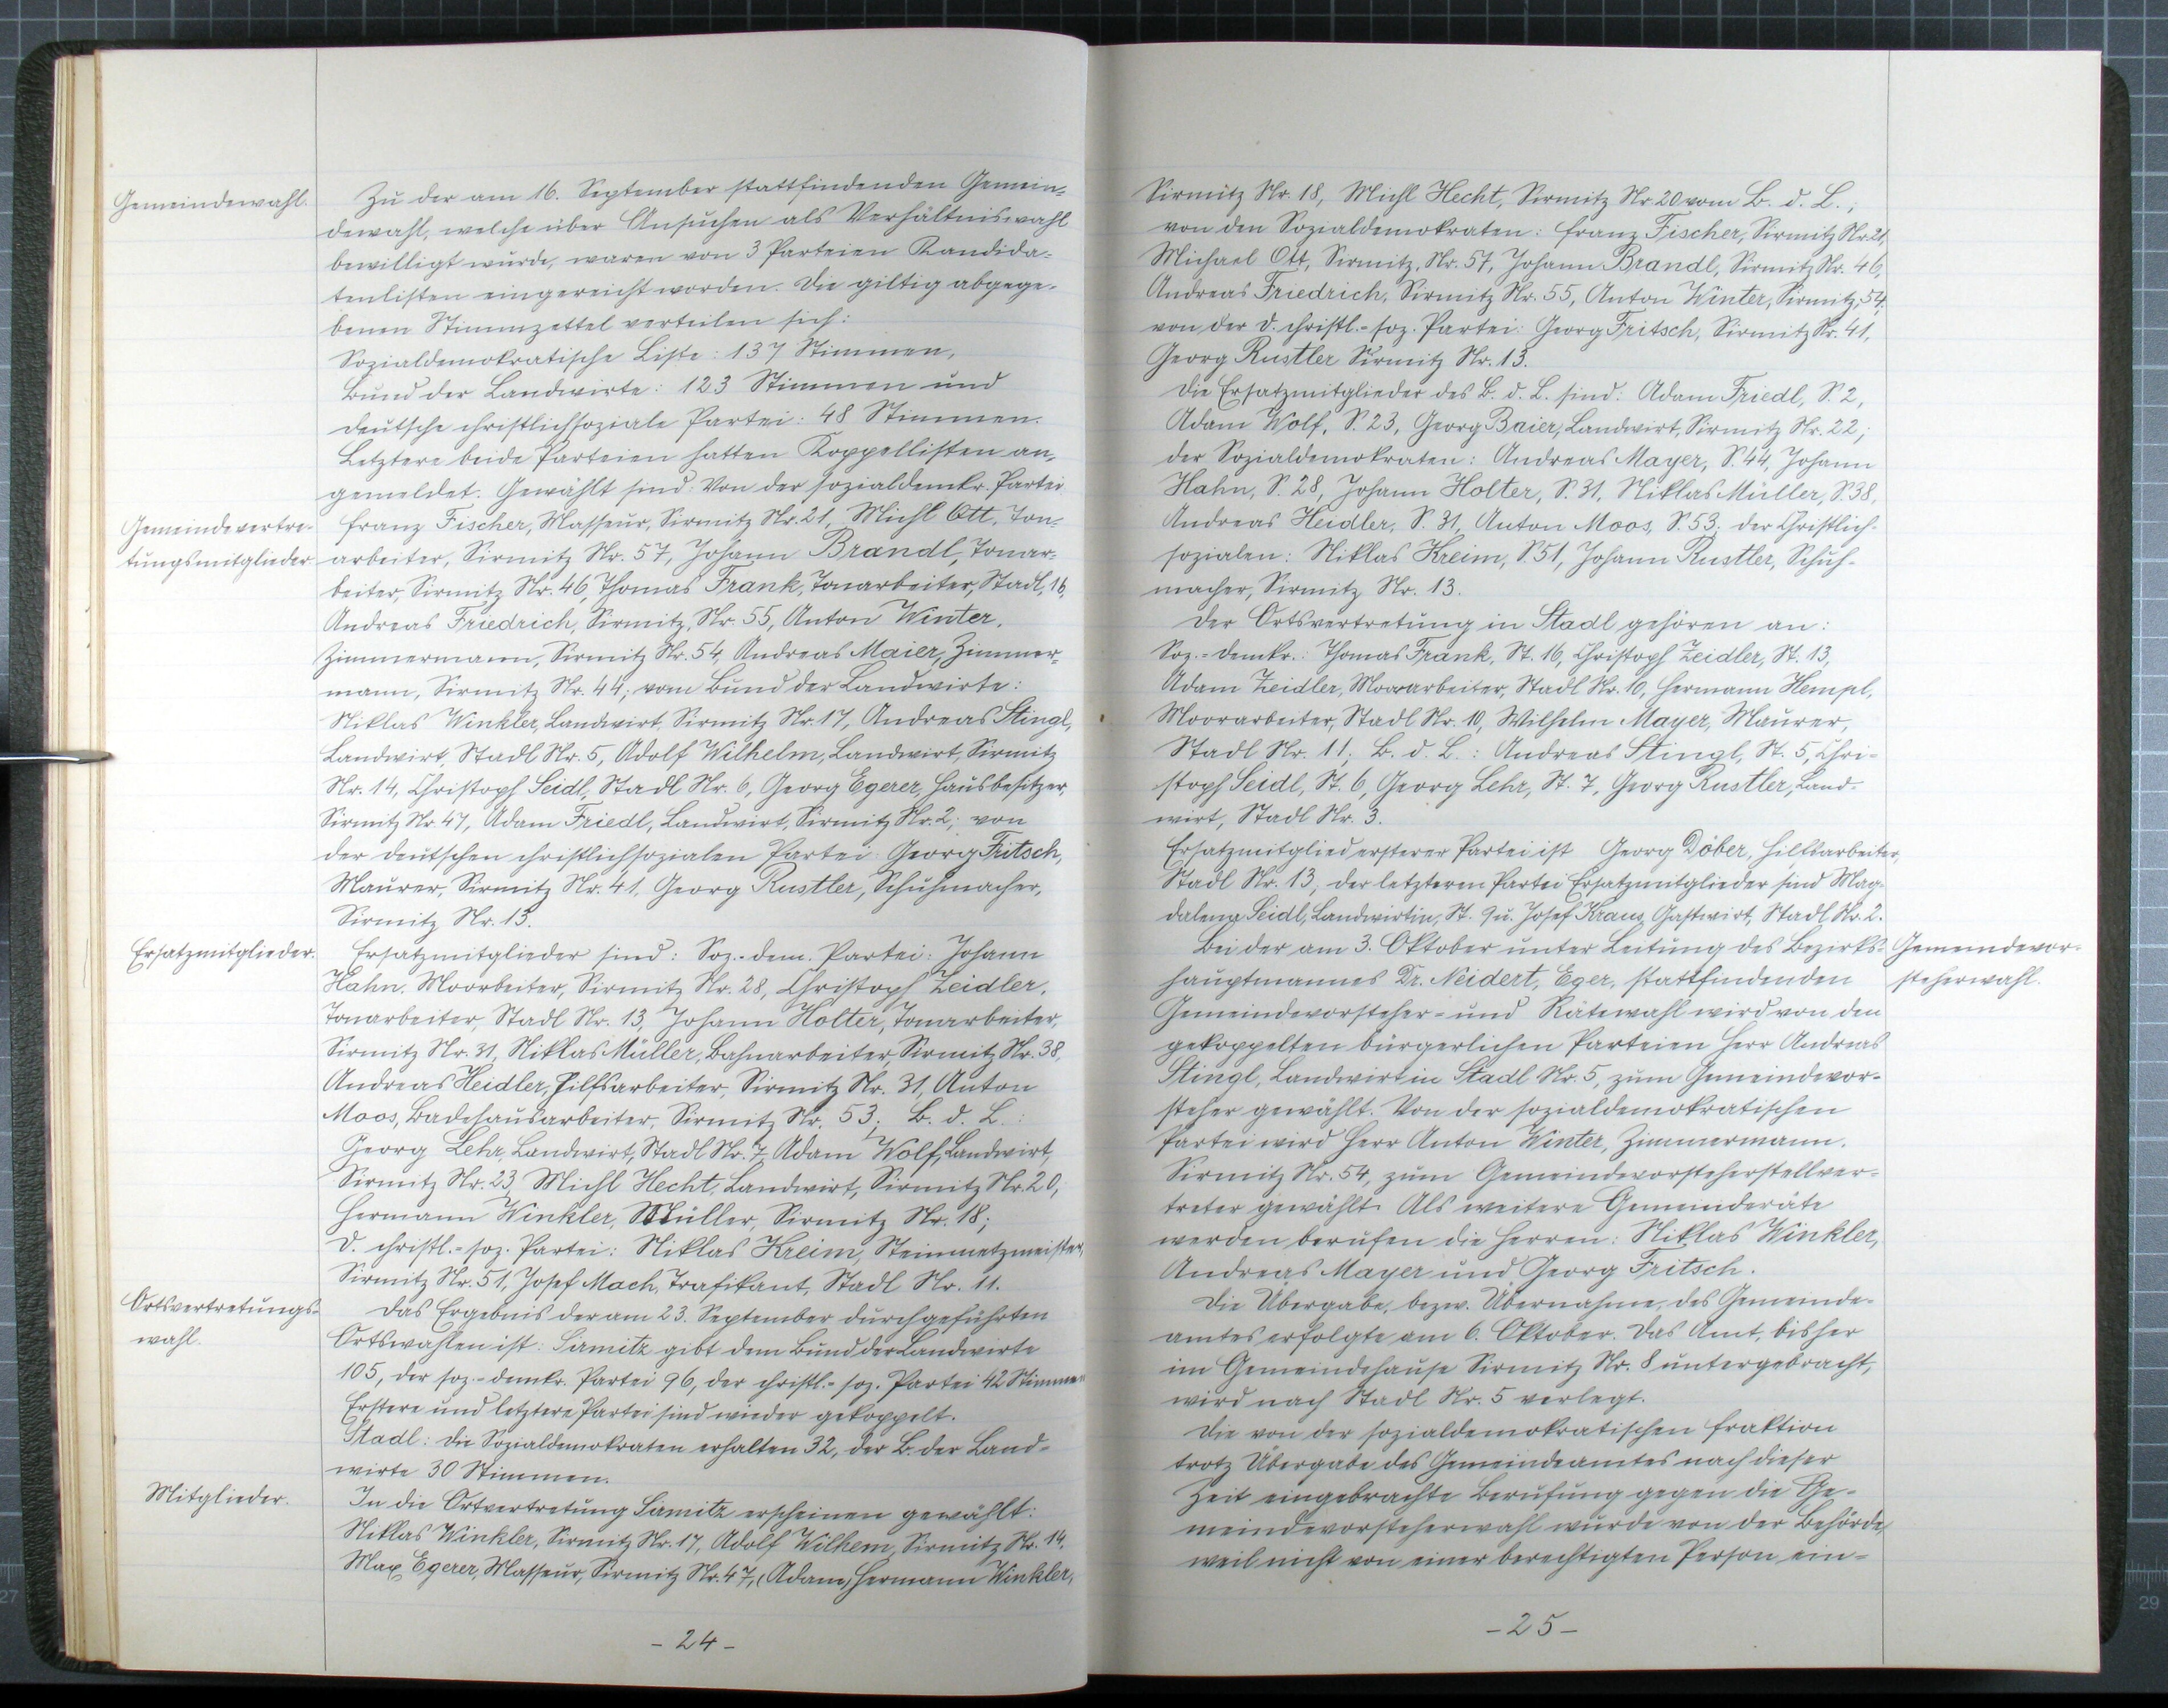 Gemeindewahl.
Zu der am 16. September stattfindenden Gemein-
dewahl, welche über Ansuchen als Verhältniswahl
bewilligt wurde, waren von 3 Parteien Kandida-
tenlisten eingereicht worden. Die giltig abgege-
benen Stimmzettel verteilen sich:
Sozialdemokratische Liste: 137 Stimmen,
Bund der Landwirte: 123 Stimmen und
deutsche christlichsoziale Partei: 48 Stimmen.
Letztere beide Parteien hatten Koppellisten an-
gemeldet. Gewählt sind: Von der sozialdemkr. Partei
Gemeindevertre-
tungsmitglieder
Franz Fischer, Masseur, Sirmitz Nr. 21, Michl Ott, Ton-
arbeiter, Sirmitz Nr. 57, Johann Brandl, Tonar-
beiter, Sirmitz Nr. 46, Thomas Frank, Tonarbeiter, Stadl, 16,
Andreas Friedrich, Sirmitz, Nr. 55, Anton Winter,
Zimmermann, Sirmitz Nr. 54, Andreas Maier, Zimmer-
mann, Sirmitz Nr. 44; vom Bund der Landwirte:
Niklas Winkler, Landwirt, Sirmitz Nr. 17, Andreas Stingl,
Landwirt, Stadl Nr. 5, Adolf Wilhelm, Landwirt, Sirmitz
Nr. 14, Christoph Seidl, Stadl Nr. 6, Georg Egerer, Hausbesitzer,
Sirmitz Nr. 47, Adam Friedl, Landwirt, Sirmitz Nr. 2; von
der deutschen christlichsozialen Partei: Georg Fritsch,
Maurer, Sirmitz Nr. 41, Georg Rustler, Schuhmacher,
Sirmitz Nr. 13.
Ersatzmitglieder.
Ersatzmitglieder sind: Soz.-dem. Partei: Johann
Hahn, Moorbeiter, Sirmitz Nr. 28, Christoph Zeidler,
Tonarbeiter, Stadl Nr. 13, Johann Holter, Tonarbeiter,
Sirmitz Nr. 31, Niklas Müller, Bahnarbeiter, Sirmitz Nr. 38,
Andreas Heidler, Hilfsarbeiter, Sirmitz Nr. 31, Anton
Moos, Badehausarbeiter, Sirmitz Nr. 53; B. d. L.:
Georg Lehr, Landwirt, Stadl Nr. 7, Adam Wolf, Landwirt,
Sirmitz Nr. 23, Michl Hecht, Landwirt, Sirmitz Nr. 20,
Hermann Winkler, Müller, Sirmitz Nr. 18;
D. christl.-soz. Partei: Niklas Kreim, Steinmetzmeister,
Sirmitz Nr. 51, Josef Mach, Trafikant, Stadl Nr. 11.
Ortsvertretungs-
wahl.
Das Ergebnis der am 23. September durchgeführten
Ortswahlen ist: Sirmitz gibt dem Bund der Landwirte
105, der soz.-demkr. Partei 96, der christl.-soz. Partei 42 Stimmen
Erstere und letztere Partei sind wieder gekoppelt.
Stadl: Die Sozialdemokraten erhalten 32, der B. der Land-
wirte 30 Stimmen.
Mitglieder.
In die Ortvertretung Sirmitz erscheinen gewählt:
Niklas Winkler, Sirmitz Nr. 17, Adolf Wilhem, Sirmitz Nr. 14,
Max Egerer, Masseur, Sirmitz Nr. 47, (Adam) Hermann Winkler,
- 24 -
Sirmitz Nr. 18, Michl Hecht, Sirmitz Nr. 20 vom B. d. L.;
von den Sozialdemokraten: Franz Fischer, Sirmitz Nr. 21,
Michael Ott, Sirmitz, Nr. 57, Johann Brandl, Sirmitz Nr. 46,
Andreas Friedrich, Sirmitz Nr. 55, Anton Winter, Sirmitz, 54;
von der d. christl.-soz. Partei: Georg Fritsch, Sirmitz Nr. 41,
Georg Rustler Sirmitz Nr. 13.
Die Ersatzmitglieder des B. d. L. sind: Adam Friedl, S. 2,
Adam Wolf, S. 23, Georg Baier, Landwirt, Sirmitz Nr. 22;
der Sozialdemokraten: Andreas Mayer, S. 44, Johann
Hahn, S. 28, Johann Holter, S. 31, Niklas Müller, S. 38,
Andreas Heidler, S. 31, Anton Moos, S. 53; der Christlich-
sozialen: Niklas Kreim, S. 51, Johann Rustler, Schuh-
macher, Sirmitz Nr. 13.
Der Ortsvertretung in Stadl gehören an:
Soz.-demkr.: Thomas Frank, St. 16, Christoph Zeidler, St. 13,
Adam Zeidler, Moorarbeiter, Stadl Nr. 10, Hermann Hempl,
Moorarbeiter, Stadl Nr. 10, Wilhelm Mayer, Maurer,
Stadl Nr. 11; B. d. L.: Andreas Stingl, St. 5, Chri-
stoph Seidl, St. 6, Georg Lehr, St. 7, Georg Rustler, Land-
wirt, Stadl Nr. 3.
Ersatzmitglied ersterer Partei ist Georg Döber, Hilfsarbeiter,
Stadl Nr. 13, der letzteren Partei Ersatzmitglieder sind Mag-
dalena Seidl, Landwirtin, St. 9 u. Josef Kraus, Gastwirt, Stadl Nr. 2.
Gemeindevor-
steherwahl.
Bei der am 3. Oktober unter Leitung des Bezirks-
hauptmannes Dr. Neidert, Eger, stattfindenden
Gemeindevorsteher- und Rätewahl wird von den
gekoppelten bürgerlichen Parteien Herr Andreas
Stingl, Landwirt in Stadl Nr. 5, zum Gemeindevor-
steher gewählt. Von der sozialdemokratischen
Partei wird Herr Anton Winter, Zimmermann,
Sirmitz Nr. 54, zum Gemeindevorsteherstellver-
treter gewählt. Als weitere Gemeinderäte
werden berufen die Herren: Niklas Winkler,
Andreas Mayer und Georg Fritsch.
Die Übergabe, bezw. Übernahme, des Gemeinde-
amtes erfolgte am 6. Oktober. Das Amt, bisher
im Gemeindehause Sirmitz Nr. 8 untergebracht,
wird nach Stadl Nr. 5 verlegt.
Die von der sozialdemokratischen Fraktion
trotz Übergabe des Gemeindeamtes nach dieser
Zeit eingebrachte Berufung gegen die Ge-
meindevorsteherwahl wurde von der Behörde,
weil nicht von einer berechtigten Person ein-
- 25 -
27
29